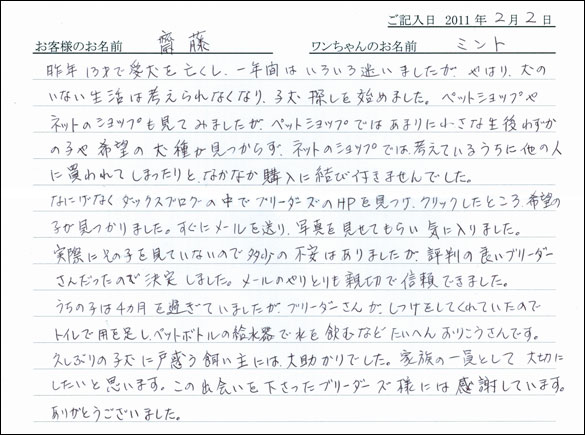 ご記入日 2011年 2月 2日
お客様のお名前 齋藤 ワンちゃんのお名前 ミント
昨年13才で愛犬を亡くし、一年間はいろいろ迷いましたが、やはり、犬の
いない生活は考えられなくなり、子犬探しを始めました。ペットショップや
ネットのショップも見てみましたが、ペットショップではあまりに小さな生後わずか
の子や希望の犬種が見つからず、ネットのショップでは、考えているうちに他の人
に買われてしまったりと、なかなか購入に結び付きませんでした。
なにげなくダックスブログの中でブリーダーズのHPを見つけ、クリックしたところ、希望の
子が見つかりました。すぐにメールを送り、写真を見せてもらい気に入りました。
実際にその子を見ていないので多少の不安はありましたが、評判の良いブリーダー
さんだったので決定しました。メールのやりとりも親切で信頼できました。
うちの子は4ヵ月を過ぎていましたが、ブリーダーさんが、しつけをしてくれていたので
トイレで用を足し、ペットボトルの給水器で水を飲むなどたいへんおりこうさんです。
久しぶりの子犬に戸惑う飼い主には、大助かりでした。家族の一員として大切に
したいと思います。この出会いを下さったブリーダーズ様には感謝しています。
ありがとうございました。